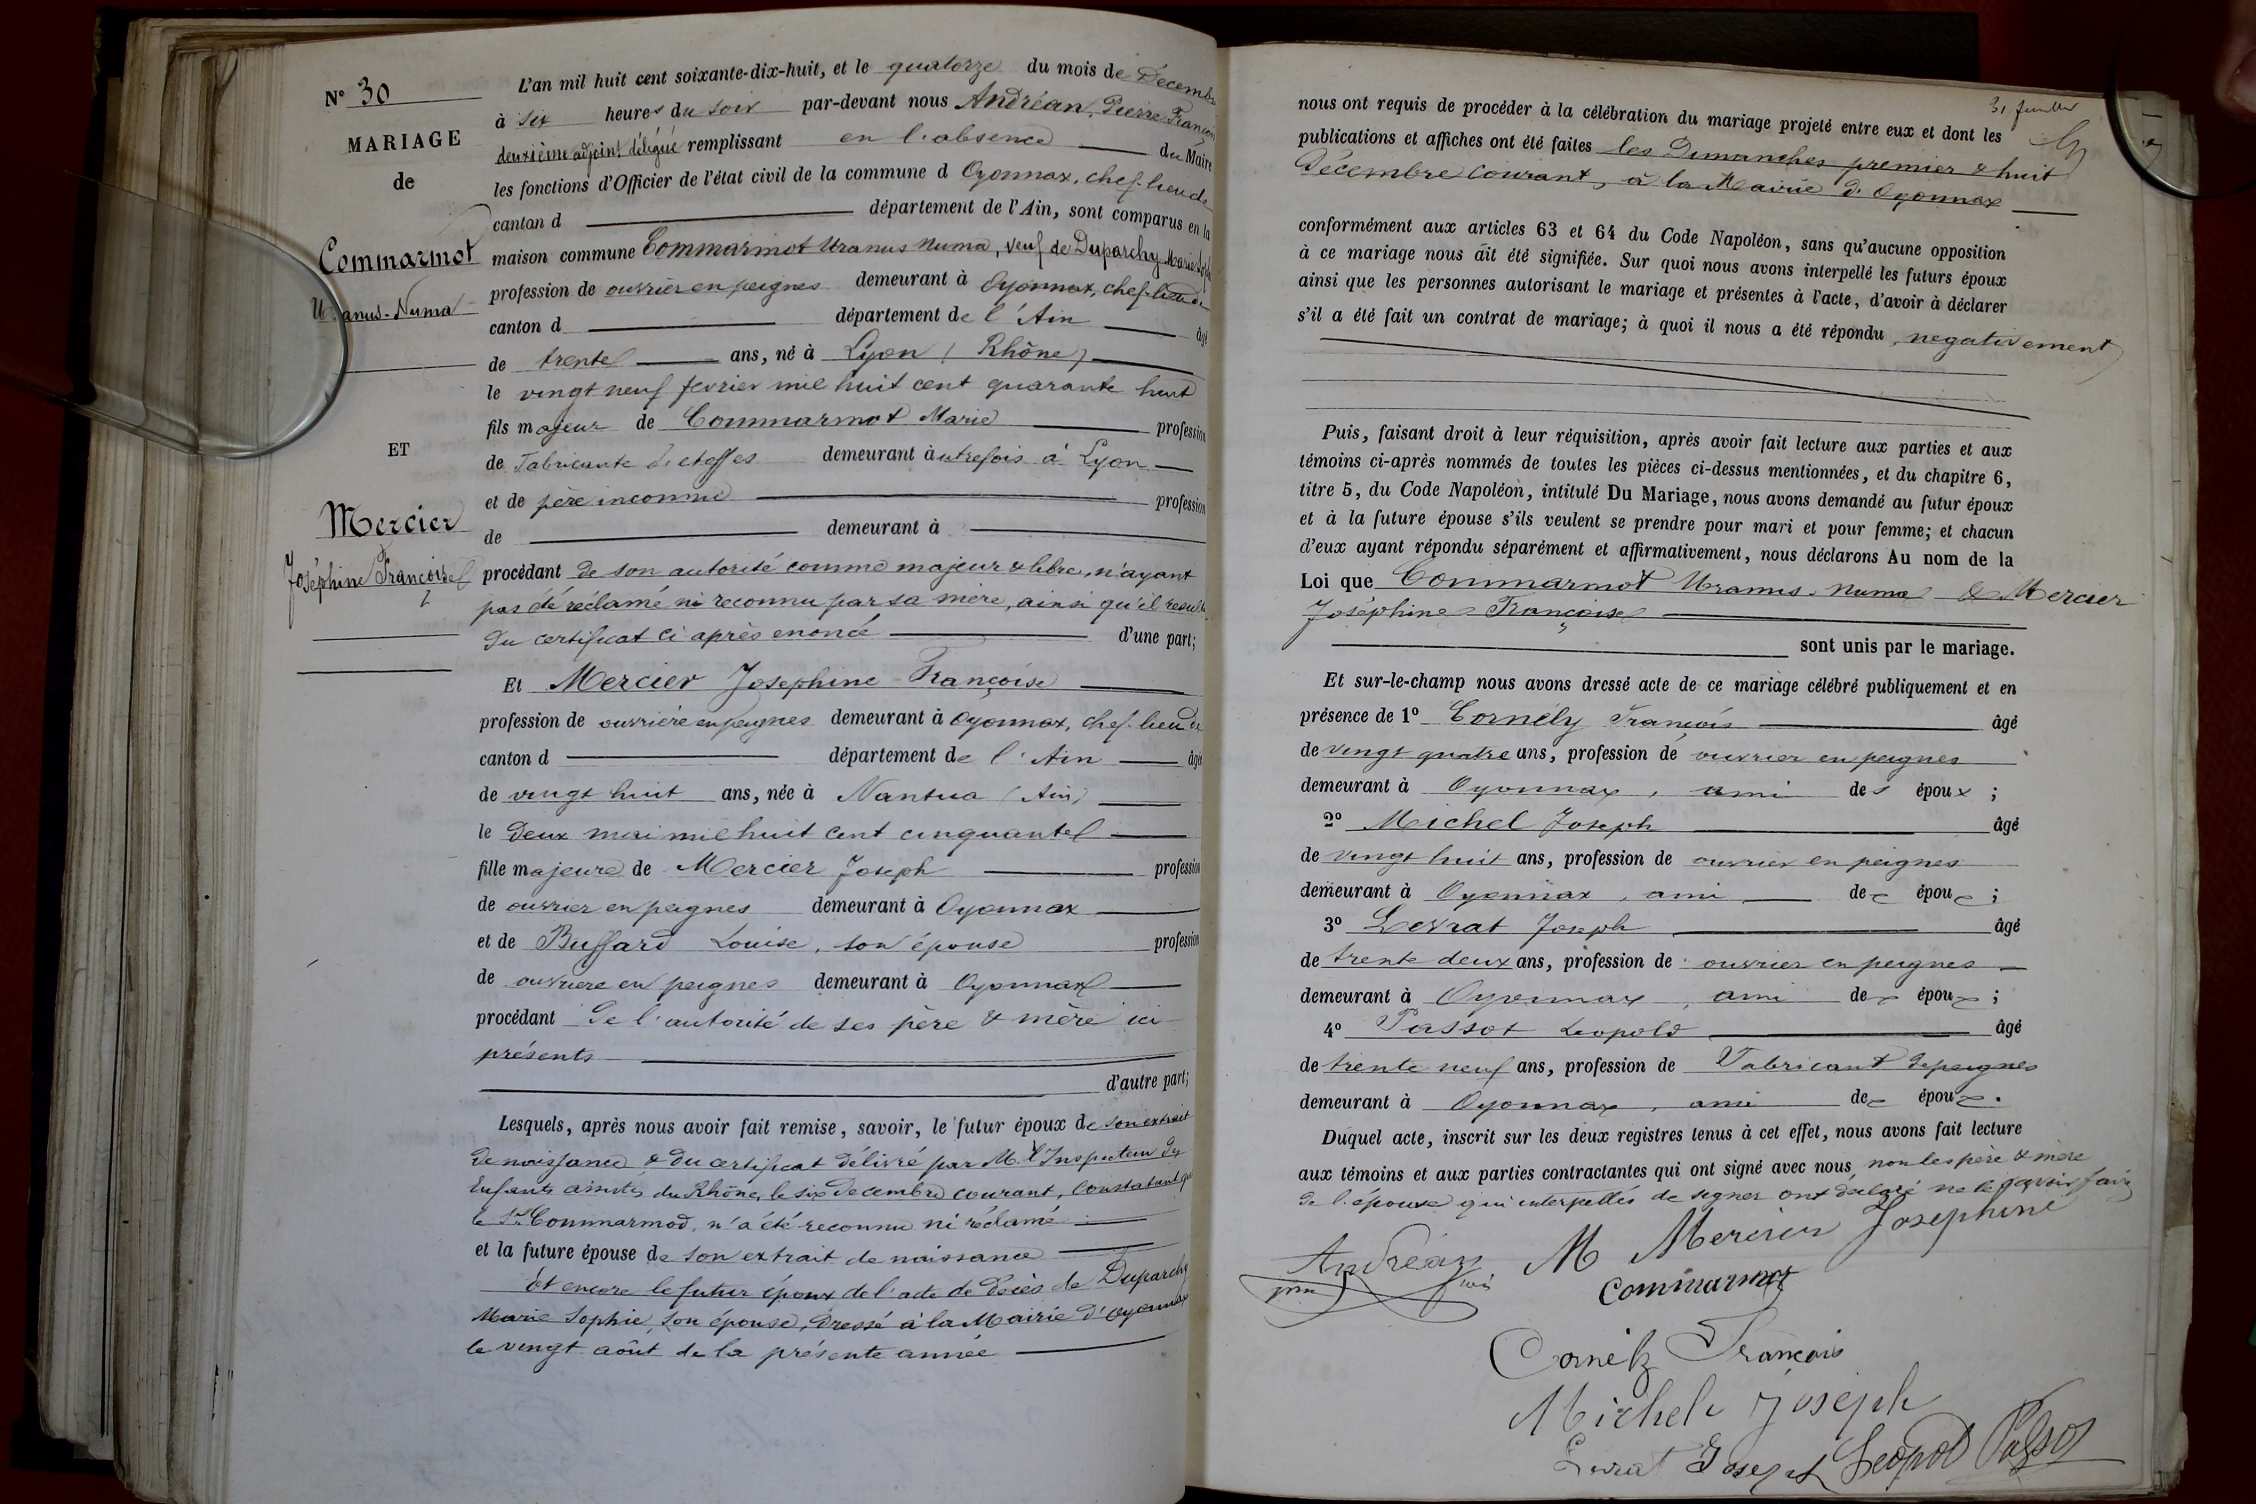 N° 30
MARIAGE
de
Commarmot
Uranus-Numa
ET
Mercier
Joséphine Françoise
L'an mil huit cent soixante-dix-huit, et le quatorze du mois de Décembre
à six heures du soir par-devant nous Andréan, Pierre François
deuxième adjoint délégué remplissant en l'absence du Maire
les fonctions d'Officier de l'état civil de la commune d Oyonnax, chef-lieu de
canton d département de l'Ain, sont comparus en la
maison commune Commarmot Uranus Numa, veuf de Duparchy Marie Sophie
profession de ouvrier en peignes demeurant à Oyonnax, chef-lieu de
canton d département de l'Ain âgé
de trente ans, né à Lyon (Rhône)
le vingt neuf fevrier mil huit cent quarante huit
fils majeur de Commarmot Marie profession
de Fabricante d'étoffes demeurant autrefois à Lyon
et de père inconnu profession
de demeurant à
procédant de son autorité comme majeur & libre, n'ayant
pas été réclamé ni reconnu par sa mère, ainsi qu'il resulte
du certificat ci après enoncé d'une part;
Et Mercier Josephine Françoise
profession de ouvrière en peignes demeurant à Oyonnax, chef-lieu de
canton d département de l'Ain âgée
de vingt huit ans, née à Nantua (Ain)
le deux mai mil huit cent cinquante
fille majeure de Mercier Joseph profession
de ouvrier en peignes demeurant à Oyonnax
et de Buffard Louise, son épouse profession
de ouvriere en peignes demeurant à Oyonnax
procédant de l'autorité de ses père & mère ici
présents
d'autre part;
Lesquels, après nous avoir fait remise, savoir, le futur époux de son extrait
de naissance & du certificat délivré par M. l'Inspecteur des
Enfants assistés du Rhône, le six Decembre courant, constatant que
le Sr Commarmod, n'a été reconnu ni réclamé
et la future épouse de son extrait de naissance
Et encore le futur époux de l'acte de décès de Duparchy
Marie Sophie, son épouse, dressé à la Mairie d'Oyonnax
le vingt août de la présente année
31 feuillet
nous ont requis de procéder à la célébration du mariage projeté entre eux et dont les
publications et affiches ont été faites les Dimanches premier & huit
Décembre courant, à la Mairie d'Oyonnax
conformément aux articles 63 et 64 du Code Napoléon, sans qu'aucune opposition
à ce mariage nous ait été signifiée. Sur quoi nous avons interpellé les futurs époux
ainsi que les personnes autorisant le mariage et présentes à l'acte, d'avoir à déclarer
s'il a été fait un contrat de mariage; à quoi il nous a été répondu negativement
Puis, faisant droit à leur réquisition, après avoir fait lecture aux parties et aux
témoins ci-après nommés de toutes les pièces ci-dessus mentionnées, et du chapitre 6,
titre 5, du Code Napoléon, intitulé Du Mariage, nous avons demandé au futur époux
et à la future épouse s'ils veulent se prendre pour mari et pour femme; et chacun
d'eux ayant répondu séparément et affirmativement, nous déclarons Au nom de la
Loi que Commarmot Uranus Numa & Mercier
Joséphine Françoise
sont unis par le mariage.
Et sur-le-champ nous avons dressé acte de ce mariage célébré publiquement et en
présence de 1° Cornély François âgé
de vingt quatre ans, profession de ouvrier en peignes
demeurant à Oyonnax, ami des époux ;
2° Michel Joseph âgé
de vingt huit ans, profession de ouvrier en peignes
demeurant à Oyonnax, ami de épou ;
3° Levrat Joseph âgé
de trente deux ans, profession de ouvrier en peignes
demeurant à Oyonnax, ami de épou ;
4° Passot Leopold âgé
de trente neuf ans, profession de Fabricant de peignes
demeurant à Oyonnax, ami de épou .
Duquel acte, inscrit sur les deux registres tenus à cet effet, nous avons fait lecture
aux témoins et aux parties contractantes qui ont signé avec nous, non les père & mère
de l'épouse qui interpellés de signer ont déclaré ne le savoir faire
Andréan M Mercier Josephine
Commarmot
Cornély François
Michele Joseph
Levrat Joseph Leopold Passot